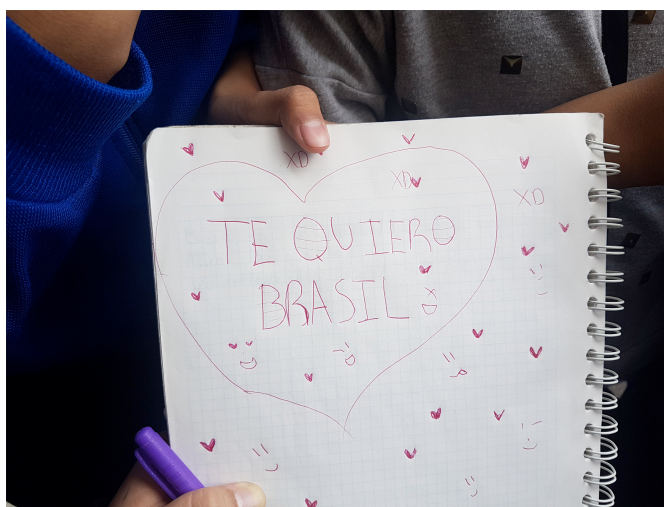 XD
XD
XD
TE QUIERO
BRASIL